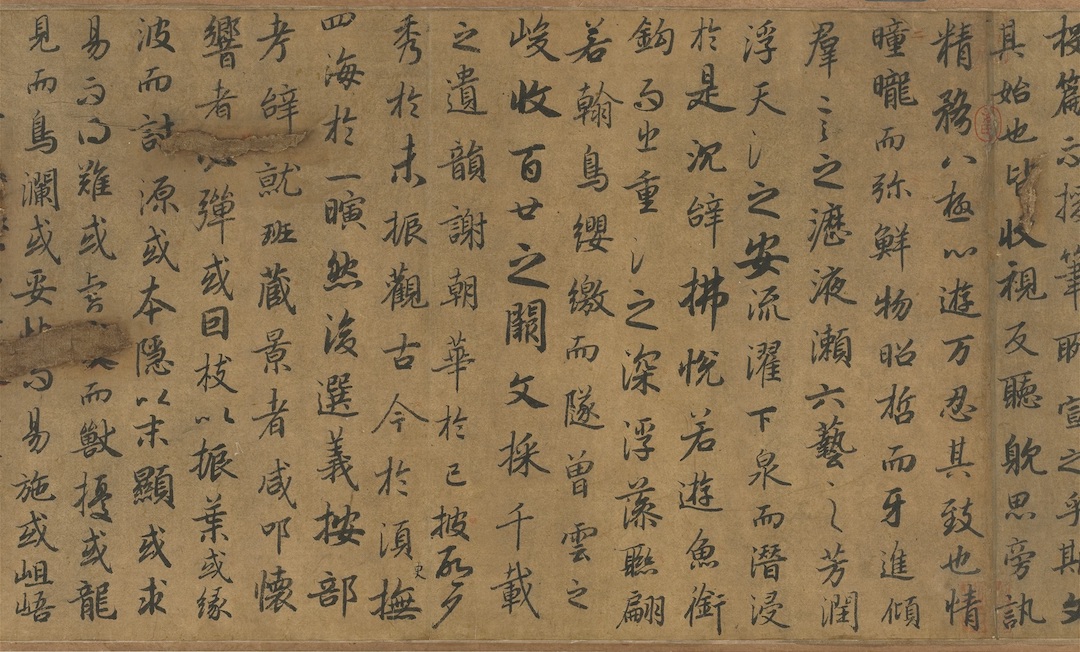 投篇而援筆聊宣之乎斯文
其始也皆收視反聽耽思旁訊
精務八極心遊万忍其致也情
曈曨而弥鮮物昭哲而牙進傾
羣言之瀝液漱六藝之芳潤
浮天淵之安流濯下泉而潛浸
於是沉辝拂悅若遊魚銜
鈎而出重淵之深浮藻聯翩
若翰鳥纓繳而墜曾雲之
峻收百世之闕文採千載
之遺韻謝朝華於已披啓夕
秀於未振觀古今於須臾撫
四海於一瞚然後選義按部
考辝就班藏景者咸叩懷
響者必彈或因枝以振葉或緣
波而討源或本隱以末顯或求
易而得難或虎變而獸擾或龍
見而鳥瀾或妥帖而易施或岨峿